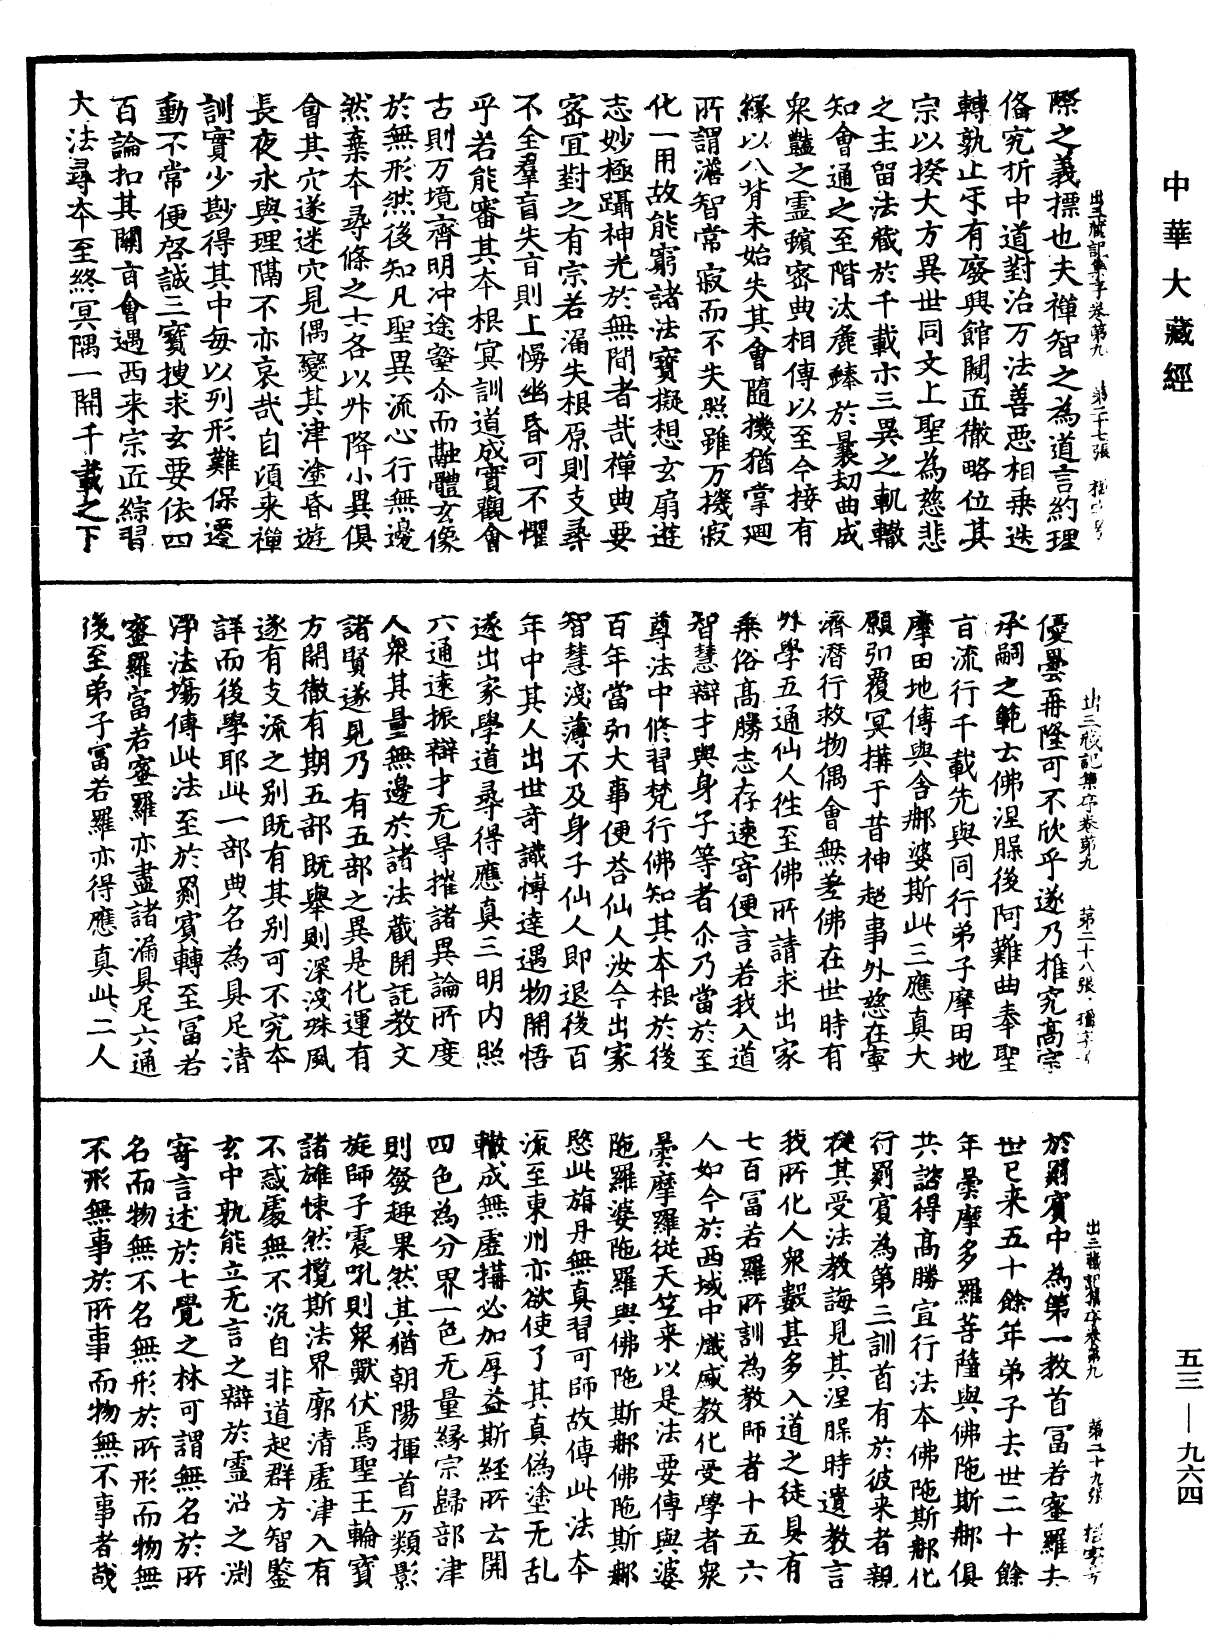 中華大藏經
際之義標也夫禪智之為道言約理
俻究折中道對治万法善惡相乗迭
轉孰止乎有廢興館闢匠徹略位其
宗以揆大方異世同文上聖為慈悲
之主留法藏於千載示三異之軌轍
知會通之至階汰麁鏻於曩刼曲成
衆豔之靈瓚密典相傳以至今接有
緣以八背未始失其會隨機猶掌廻
所謂濬智常寂而不失照雖万機寂
化一用故能窮諸法寶擬想玄扇遊
志妙極躡神光於無間者哉禪典要
密宜對之有宗若漏失根原則支尋
不全羣盲失㫖則上慢幽昏可不懼
乎若能審其本根冥訓道成實觀會
古則万境齊明冲途壑尒而融體玄像
於無形然後知凡聖異流心行無邊
然棄本尋條之士各以升降小異俱
會其穴遂迷穴見偶變其津塗昏遊
長夜永與理隔不亦哀哉自頃来禪
訓實少尠得其中每以列形難保遷
動不常便啓誠三寶搜求玄要依四
百論扣其關㫖會遇西来宗匠綜習
大法尋本至終冥隅一開千載之下
出三藏記集序卷第九 第二十七張
優曇再隆可不欣乎遂乃推究髙宗
承嗣之範云佛涅脲後阿難曲奉聖
㫖流行千載先與同行弟子摩田地
摩田地傅與舎那婆斯此三應真大
願弘覆冥搆于昔神超事外慈在寧
濟潛行救物偶會無差佛在世時有
外學五通仙人徃至佛所請求出家
乗俗髙勝志存速寄便言若我入道
智慧辯才與身子等者尒乃當於至
尊法中修習梵行佛知其本根於後
百年當弘大事便荅仙人汝今出家
智慧淺薄不及身子仙人即退後百
年中其人出世竒識愽達遇物開悟
遂出家學道尋得應真三明内照
六通逺振辯才无㝵摧諸異論所度
人衆其量無邊於諸法藏開託教文
諸賢遂見乃有五部之異是化運有
方開徹有期五部既舉則深淺殊風
遂有支流之别既有其别可不究本
詳而後學耶此一部典名為具足清
浄法塲傳此法至於罽賓轉至冨若
蜜羅富若蜜羅亦盡諸漏具足六通
後至弟子富若羅亦得應真此二人
出三藏記集序卷第九 第二十八張
於罽賓中為第一教首冨若蜜羅去
世已来五十餘年弟子去世二十餘
年曇摩多羅菩薩與佛陁斯那俱
共諮得高勝宣行法本佛陁斯那化
行罽賓為第三訓首有於彼来者親
從其受法教誨見其涅脲時遺教言
我所化人衆數甚多入道之徒具有
七百冨若羅所訓為教師者十五六
人如今於西域中熾盛教化受學者衆
曇摩羅從天竺来以是法要傳與婆
陁羅婆陁羅與佛陁斯那佛陁斯那
愍此旃丹無真習可師故傳此法本
流至東州亦欲使了其真偽塗无乱
轍成無虛搆必加厚益斯經所云開
四色為分界一色无量縁宗歸部津
則發趣果然其猶朝陽揮首万類影
旋師子震吼則衆獸伏焉聖王輪寶
諸雄悚然攬斯法界廓清虛津入有
不惑處無不沉自非道起群方智鑒
玄中孰能立无言之辯於靈沼之渕
寄言述於七覺之林可謂無名於所
名而物無不名無形於所形而物無
不形無事於所事而物無不事者哉
出三藏記集序卷第九 第二十九張
五三—九六四